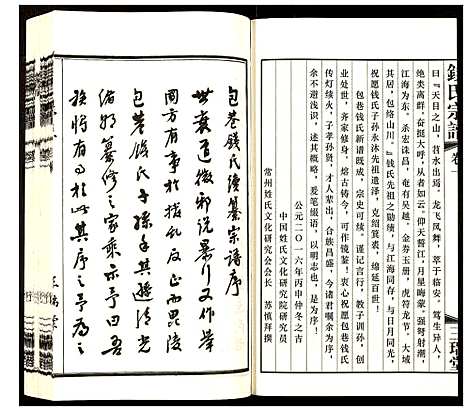 錢氏宗譜 卷一
三瑞堂
曰『天目之山，苕水出焉。龙飞凤舞，萃于临安。笃生异人，
绝类离群。奋挺大呼，从者如云。仰天誓江，月星晦蒙。强弩射潮，
江海为东。杀宏诛昌，奄有吴越。金券玉册，虎符龙节。大城
其居，包络山川。』钱氏先祖之勋绩，与江海同存，与日月同光，
祝愿钱氏子孙永沐先祖遗泽，克绍箕裘，绵延百世！
包巷钱氏新谱既成，宗史可续。谨记言行，教子训孙，创
业处世，齐家修身，熔古铸今，可作镜鉴！衷心祝愿包巷钱氏
传灯续火，子孙贤达，才人辈出，合族昌盛，今诸君嘱余为序，
余不避浅识，述其概略，爰笔缀语，以明志也，是为序！
公元二〇一六年丙申仲冬之吉
中国姓氏文化研究院研究员
常州姓氏文化研究会会长 苏慎拜撰
包巷錢氏續纂宗譜序
世衰道微邪说暴行又作举
国方有事於拨乱反正而毘陵
包巷錢氏子孫子其遊清光
緒朝纂修之家乘示予曰吾
族將有於此其序之予為之